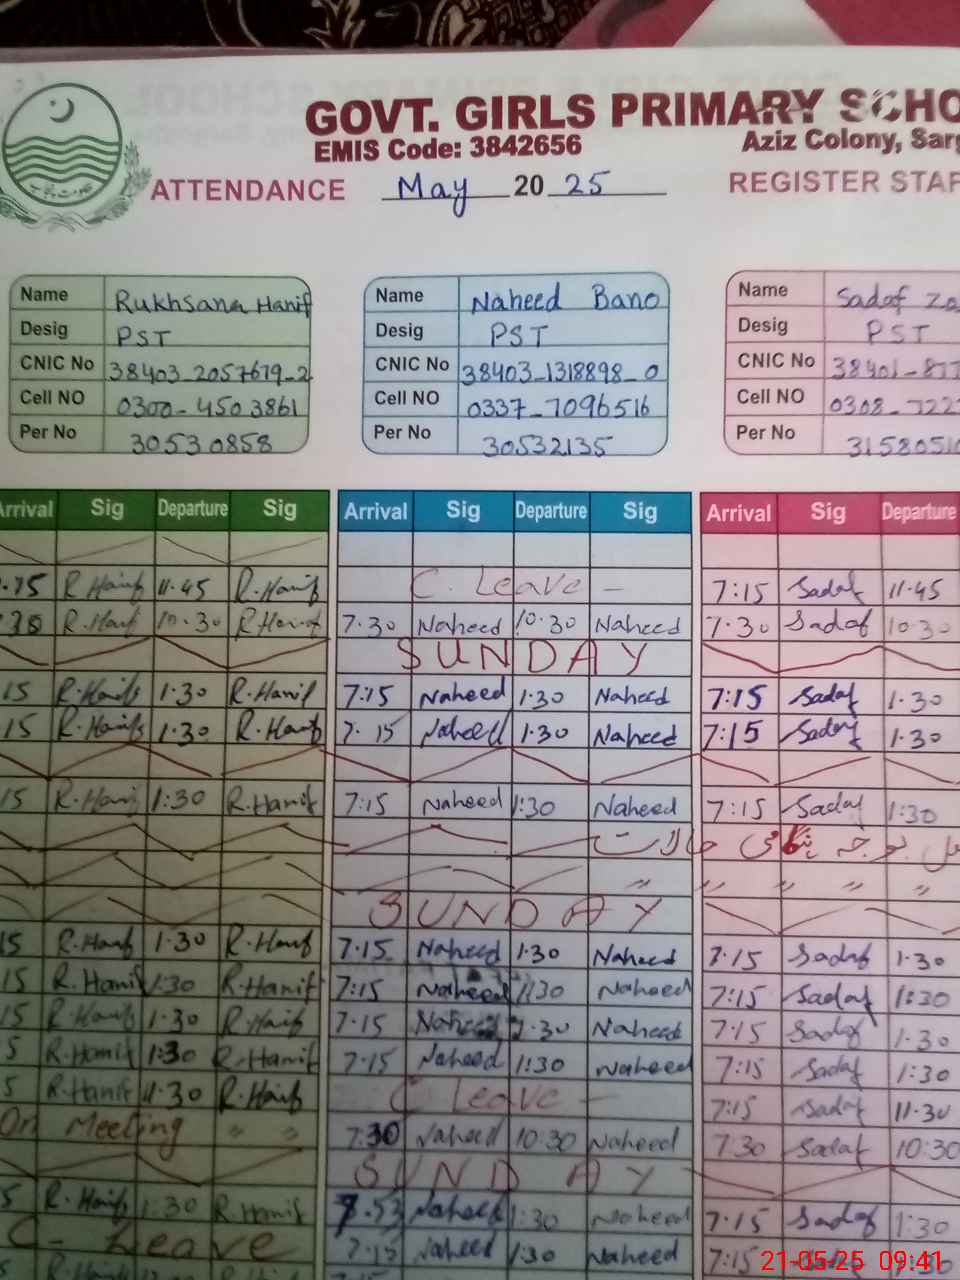 GOVT. GIRLS PRIMARY SCHO
EMIS Code: 3842656
Aziz Colony, Sarg
ATTENDANCE May 2025 REGISTER STAF
Name Rukhsana Hanif Name Naheed Bano Name Sadaf Za
Desig PST Desig PST Desig PST
CNIC No 38403_2057679_2 CNIC No 38403_1318898_0 CNIC No 38401-877
Cell NO 0300-4503861 Cell NO 0337_7096516 Cell NO 0308_7227
Per No 30530858 Per No 30532135 Per No 3158051
Arrival Sig Departure Sig Arrival Sig Departure Sig Arrival Sig Departure
.15 R.Hanif 11.45 R.Hanif C. Leave - 7:15 Sadaf 11.45
.30 R.Hanif 10.30 R.Hanif 7.30 Naheed 10.30 Naheed 7.30 Sadaf 10.30
SUNDAY
15 R.Hanif 1.30 R.Hanif 7:15 Naheed 1:30 Naheed 7:15 Sadaf 1.30
15 R.Hanif 1.30 R.Hanif 7.15 Naheed 1.30 Naheed 7:15 Sadaf 1.30
15 R.Hanif 1:30 R.Hanif 7:15 Naheed 1:30 Naheed 7:15 Sadaf 1:30
بوجہ ہنگامی حالات
" " " " "
SUNDAY
15 R.Hanif 1.30 R.Hanif 7.15 Naheed 1:30 Naheed 7.15 Sadaf 1.30
15 R.Hanif 1:30 R.Hanif 7:15 Naheed 1:30 Naheed 7:15 Sadaf 1:30
15 R.Hanif 1.30 R.Hanif 7.15 Naheed 1.30 Naheed 7:15 Sadaf 1.30
5 R.Hanif 1:30 R.Hanif 7:15 Naheed 1:30 Naheed 7:15 Sadaf 1:30
5 R.Hanif 11.30 R.Hanif C Leave - 7:15 Sadaf 11.30
On Meeting " " 7:30 Naheed 10:30 Naheed 7:30 Sadaf 10:30
SUNDAY
5 R.Hanif 1:30 R.Hanif 7.53 Naheed 1:30 Naheed 7.15 Sadaf 1:30
C- Leave 7:15 Naheed 1:30 Naheed 7:15 1:30
21-05-25 09:41